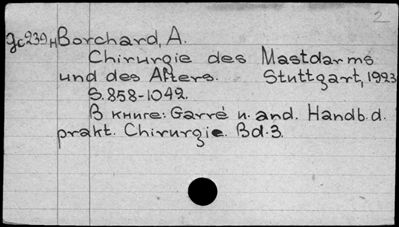 2
gc239H Borchard, A.
Chirurgie des Mastdarms
und des Afters. Stuttgart, 1923
S. 858-1042.
В книге: Garré u. and. Handb. d.
prakt. Chirurgie. Bd. 3.